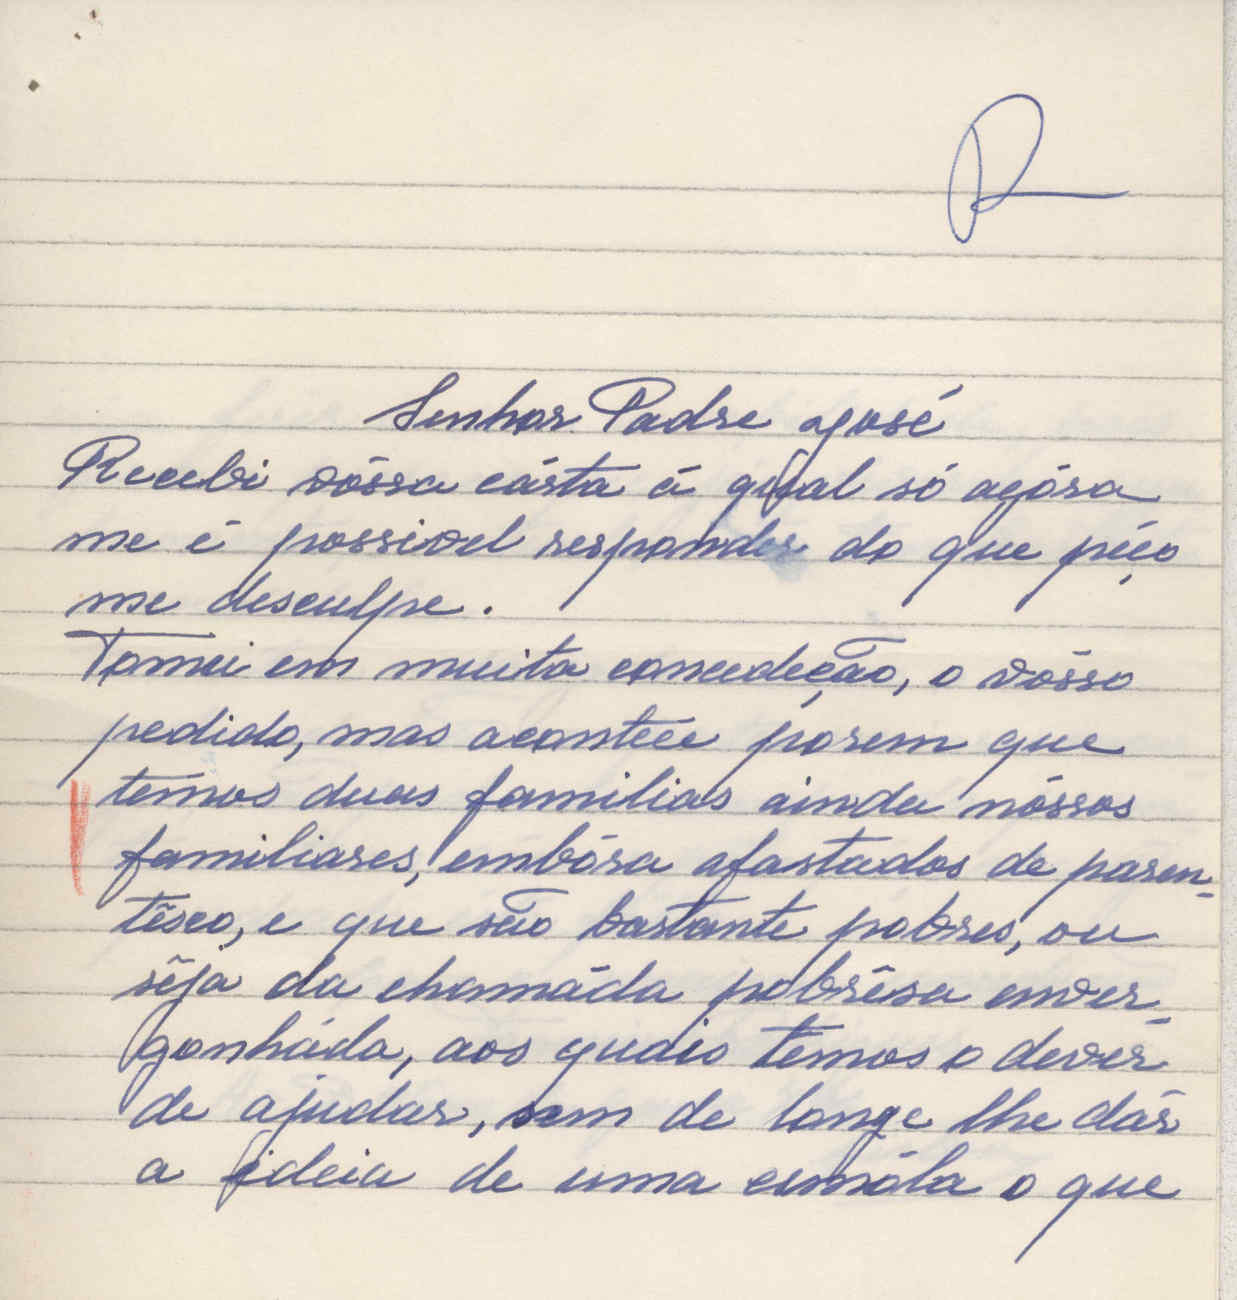 R
Senhor Padre José
Recebi vóssa cárta á qual só agóra
me é possivel responder do que péço
me desculpe.
Tomei em muita concedeção, o vósso
pedido, mas acontece porem que
temos duas familias ainda nóssos
familiares, embóra afastados de paren-
têsco, e que são bastante pobres, ou
sêja da chamáda pobrêsa enver-
gonháda, aos quais temos o devêr
de ajudar, sem de longe lhe dár
a ideia de uma esmóla o que